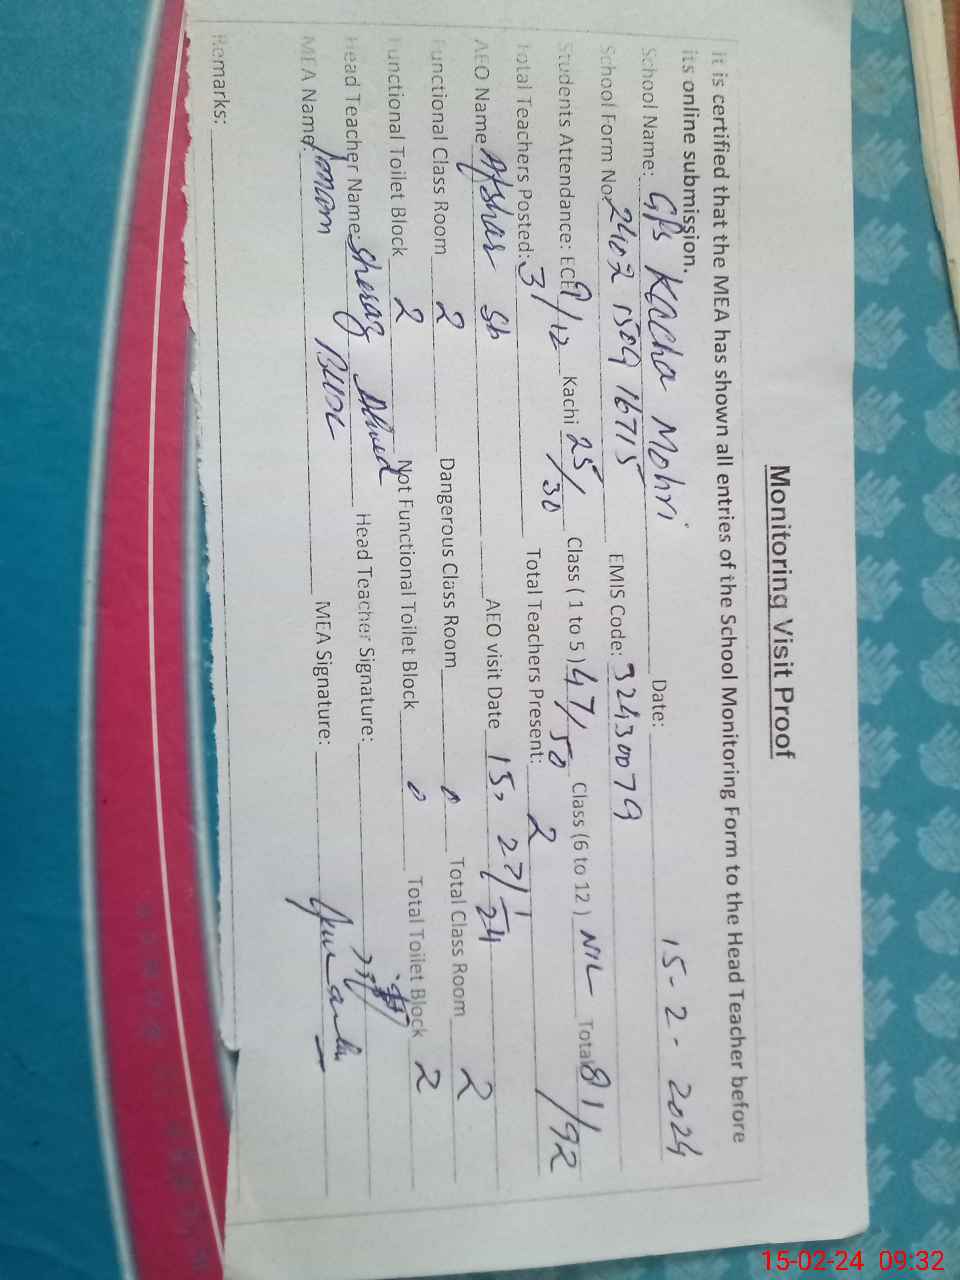 Monitoring Visit Proof
It is certified that the MEA has shown all entries of the School Monitoring Form to the Head Teacher before
its online submission.
School Name: GPS Kacha Mohri Date: 15-2-2024
School Form No: 2402 1509 16715 EMIS Code: 32430079
Students Attendance: ECE 9/12 Kachi 25/30 Class ( 1 to 5 ) 47/50 Class (6 to 12 ) NIL Total 81/92
Total Teachers Posted: 3 Total Teachers Present: 2
AEO Name Afshar Sb AEO visit Date 15, 27/1/24
Functional Class Room 2 Dangerous Class Room 0 Total Class Room 2
Functional Toilet Block 2 Not Functional Toilet Block 0 Total Toilet Block 2
Head Teacher Name: Sheraz Ahmed Head Teacher Signature:
MEA Name: Imam Bux MEA Signature:
Remarks:
15-02-24 09:32